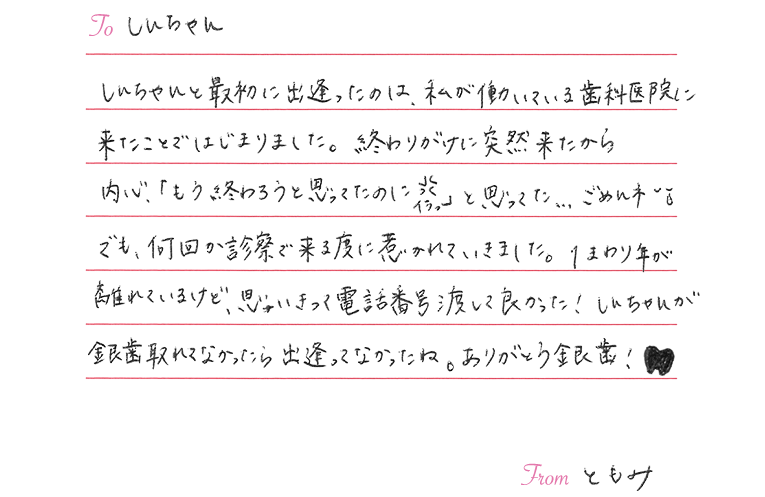 To しんちゃん
しんちゃんと最初に出逢ったのは、私が働いている歯科医院に
来たことではじまりました。終わりがけに突然来たから
内心、「もう終わろうと思ってたのに」と思ってた… ごめんネ
でも、何回か診察で来る度に惹かれていきました。1まわり年が
離れているけど、思いきって電話番号渡して良かった！しんちゃんが
銀歯取れてなかったら出逢ってなかったね。ありがとう銀歯！
From ともみ